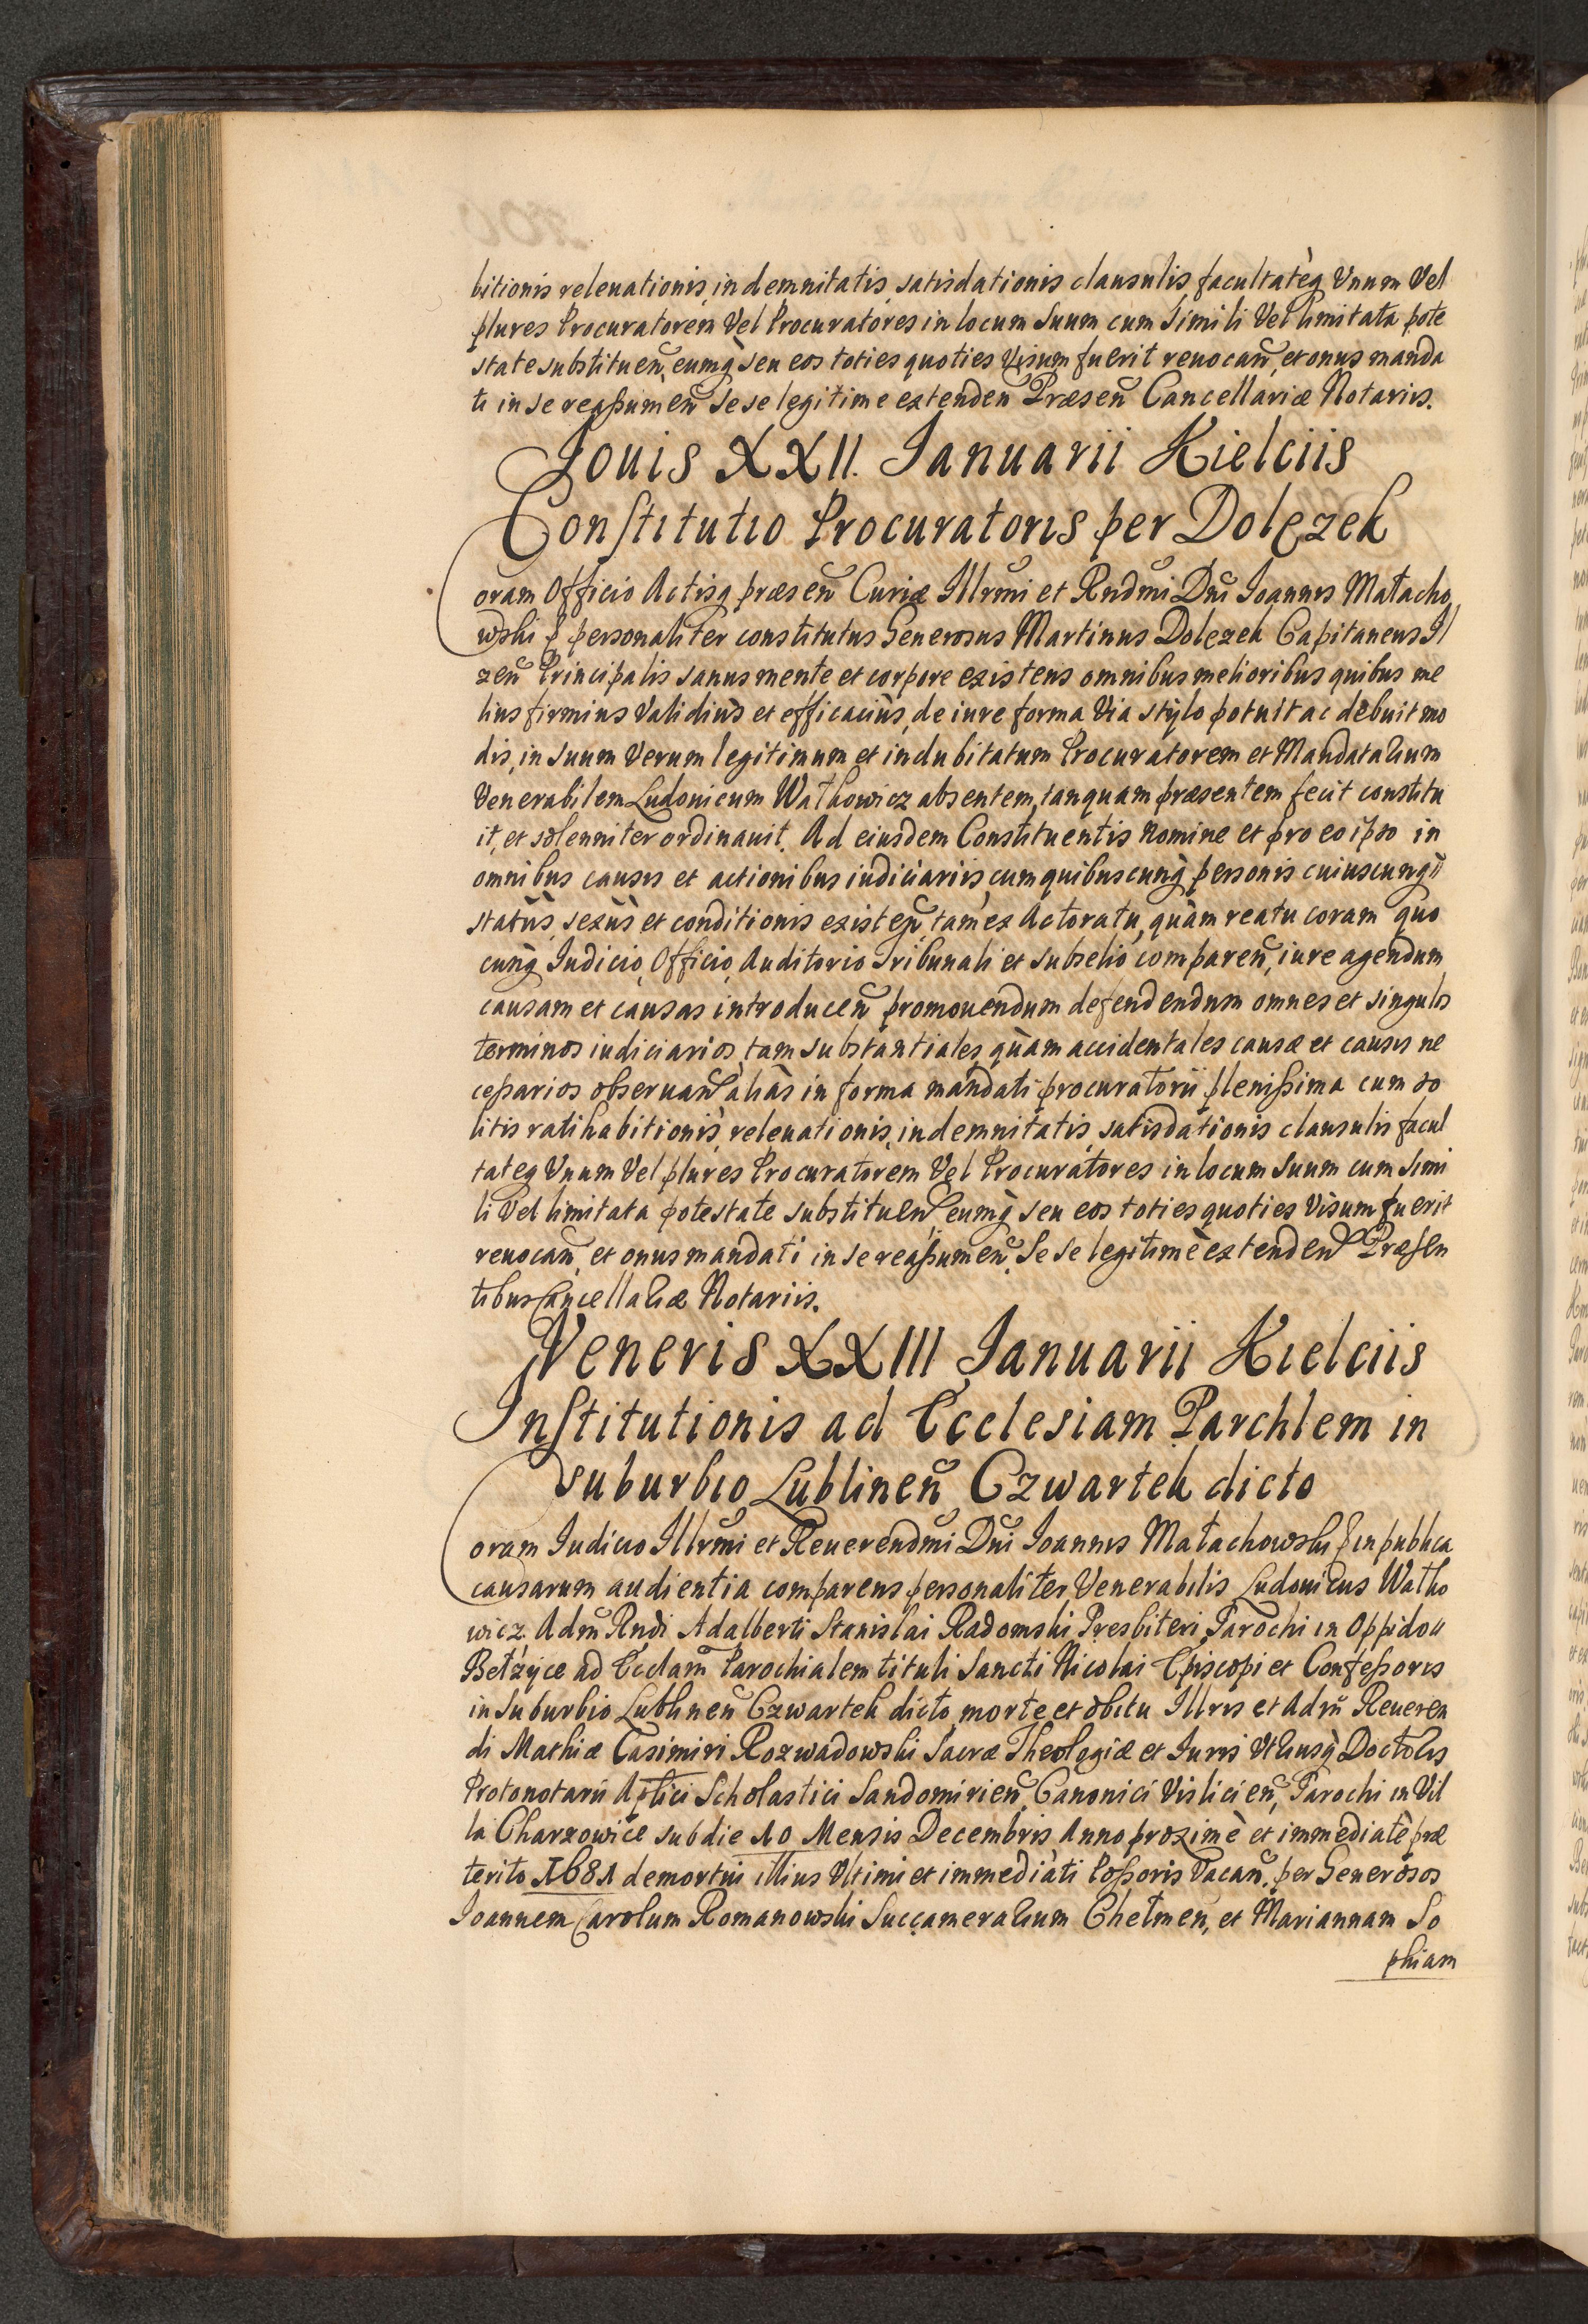 bitionis releuationis, indemnitatis, satisdationis clausulis facultateq̀ Vnum Vel
plures Procuratorem Vel Procuratores in locum Suum cum Simili Vel limitata pote
state substitueñ, eumq̀ seu eos toties quoties Visum fuerit reuocañ, et onus manda
ti in se reaßumeñ Se se legitime extendeñ Præseñ Cancellariæ Notariis.
Jouis XXII. Januarii Kielciis
Constitutio Procuratoris per Dolęzek
Coram Officio Actisq præseñ Curiæ Illrmi et Rndmi Dni Joannis Małacho
wski & personaliter constitutus Generosus Martinus Dolęzek Capitaneus Il
zeñ Principalis sanus mente et corpore existens omnibus melioribus quibus me
lius firmius Validiùs et efficaciùs, de iure forma Via stylo potuit ac debuit mo
dis, in Suum Verum legitimum et indubitatum Procuratorem et Mandatarium
Venerabilem Ludouicum Wathowicz absentem, tanquam præsentem fecit constitu
it, et solenniter ordinauit. Ad eiusdem Constituentis nomine et pro eo ipso in
omnibus causis et actionibus iudiciariis, cum quibuscunq̀ personis cuiuscunq̀
statûs, sexûs et conditionis existeñ, tam ex Actoratu, quàm reatu coram quo
cunq̀ Iudicio, Officio, Auditorio Tribunali et subselio compareñ, iure agendum,
causam et causas introduceñ promouendum defendendum omnes et singulos
terminos iudiciarios, tam substantiales, quàm accidentales causæ et causis ne
ceßarios obseruañ aliàs in forma mandati procuratorii plenißima cum so
litis ratihabitionis, releuationis, indemnitatis, satisdationis clausulis facul
tateq Vnum Vel plures Procuratorem Vel Procuratores in locum Suum cum Simi
li Vel limitata potestate substitueñ, eumq̀ seu eos toties quoties Visum fuerit
reuocañ, et onus mandati in se reaßumeñ. Se se legitimè extendeñ Præsen
tibus Cancellariæ Notariis.
Veneris XXIII Januarii Kielciis
Institutionis ad Ecclesiam Parchlem in
suburbio Lublineñ Czwartek dicto
Coram Iudicio Illrmi et Reuerendmi Dni Joannis Małachowski & in publica
causarum audientia comparens personaliter Venerabilis Ludouicus Watho
wicz Adm̃ Rndi Adalberti Stanislai Radomski Presbiteri, Parochi in Oppido
Bełżyce ad Eccłam Parochialem tituli Sancti Nicolai Episcopi et Confeßoris
in Suburbio Lublineñ Czwartek dicto, morte et obitu Illris et Adm̃ Reueren
di Mathiæ Casimiri Rozwadowski Sacræ Theologiæ et Iuris Vtriusq̀ Doctoris
Protonotarii Aplici Scholastici Sandomirieñ, Canonici Vislicieñ, Parochi in Vil
la Charzowice sub die 10 Mensis Decembris Anno proximè et immediatè præ
terito 1681 demortui illius Vltimi et immediati Poßoris Vacañ. per Generosos
Joannem Carolum Romanowski Succamerarium Chełmeñ, et Mariannam So
phiam